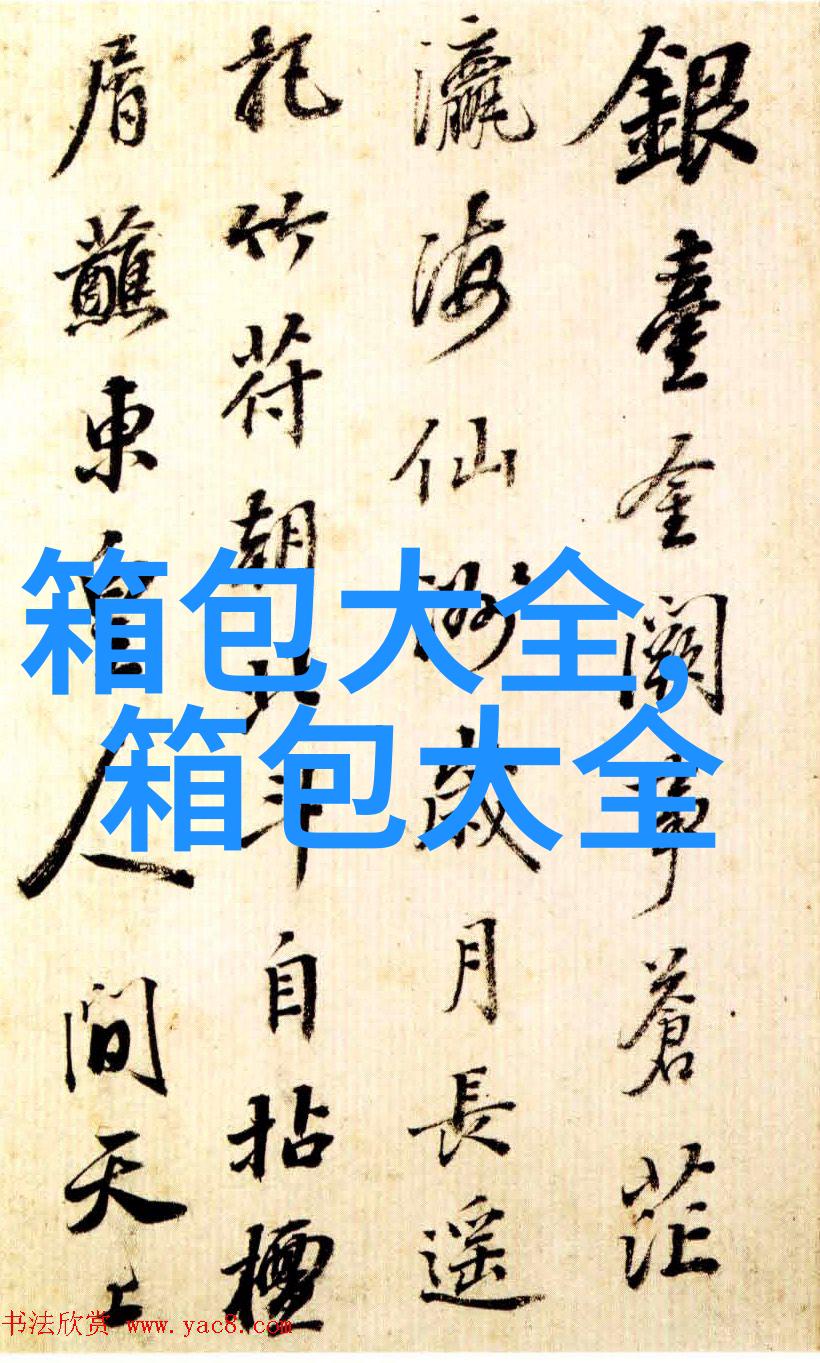 銀臺金闕事蒼茫
瀛海仙洲歲月長遥
竹符朝北斗自拈檀
屑蘸東皇人間天上
箱包大全,
箱包大全
书法欣赏 www.yac8.com